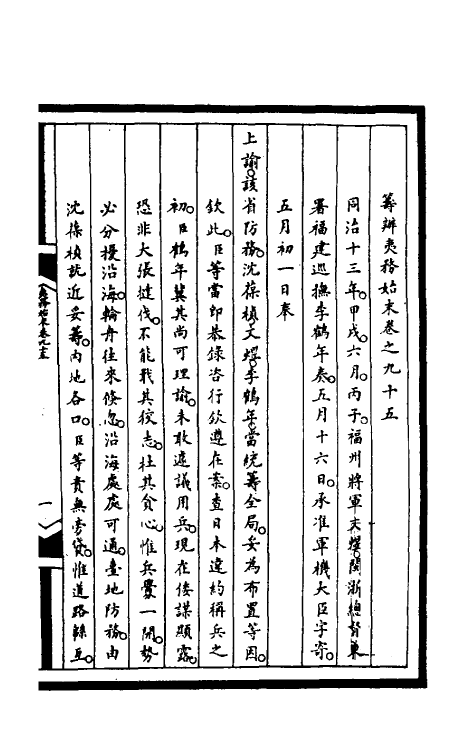 籌辦夷務始末卷之九十五
同治十三年。甲戌六月。丙子。福州將軍文煜。閩浙總督兼
署福建巡撫李鶴年奏。五月十六日。承准軍機大臣字寄。
五月初一日奉
上諭。該省防務。沈葆楨文煜。李鶴年。當統籌全局。妥為布置等因。
欽此。臣等當卽恭錄咨行欽遵在案。查日本違約稱兵之
初。臣鶴年冀其尚可理諭。未敢遽議用兵。現在倭謀顯露。
恐非大張撻伐。不能戢其狡志。杜其貪心。惟兵釁一開。勢
必分擾沿海。輪舟往來倏忽。沿海處處可通。臺地防務。由
沈葆楨就近妥籌。內地各口。臣等責無旁貸。惟道路緜亙。
夷務始末卷九十五
一